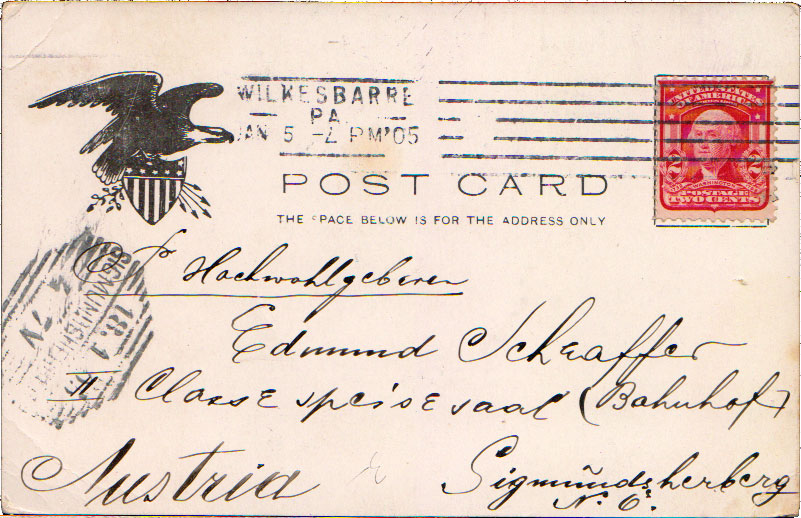 WILKESBARRE
PA.
JAN 5 -7 PM '05
UNITED STATES
OF AMERICA
2 2
WASHINGTON
POSTAGE
TWO CENTS
POST CARD
THE SPACE BELOW IS FOR THE ADDRESS ONLY
Hochwohlgeboren
Edmund Scheaffer
II Classe speise saal (Bahnhof)
Austria Sigmundsherberg
N. Ö.
18. 1